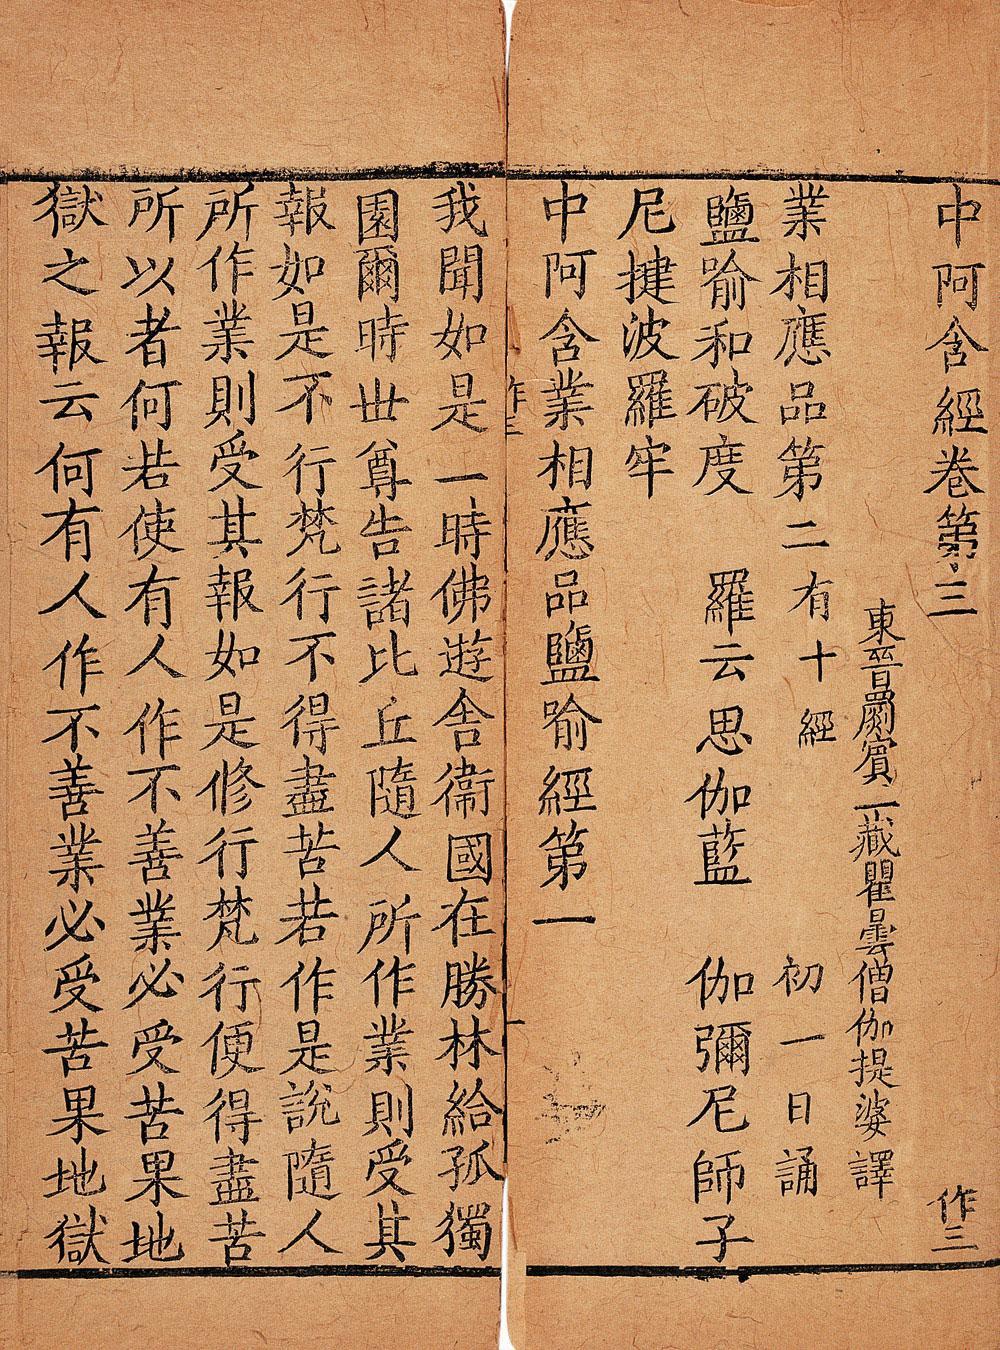 中阿含經卷第三 作三
東晉罽賓三藏瞿曇僧伽提婆譯
業相應品第二有十經 初一日誦
鹽喻和破度 羅云思伽藍 伽彌尼師子
尼揵波羅牢
中阿含業相應品鹽喻經第一
作三
我聞如是一時佛遊舍衛國在勝林給孤獨
園爾時世尊告諸比丘隨人所作業則受其
報如是不行梵行不得盡苦若作是說隨人
所作業則受其報如是修行梵行便得盡苦
所以者何若使有人作不善業必受苦果地
獄之報云何有人作不善業必受苦果地獄